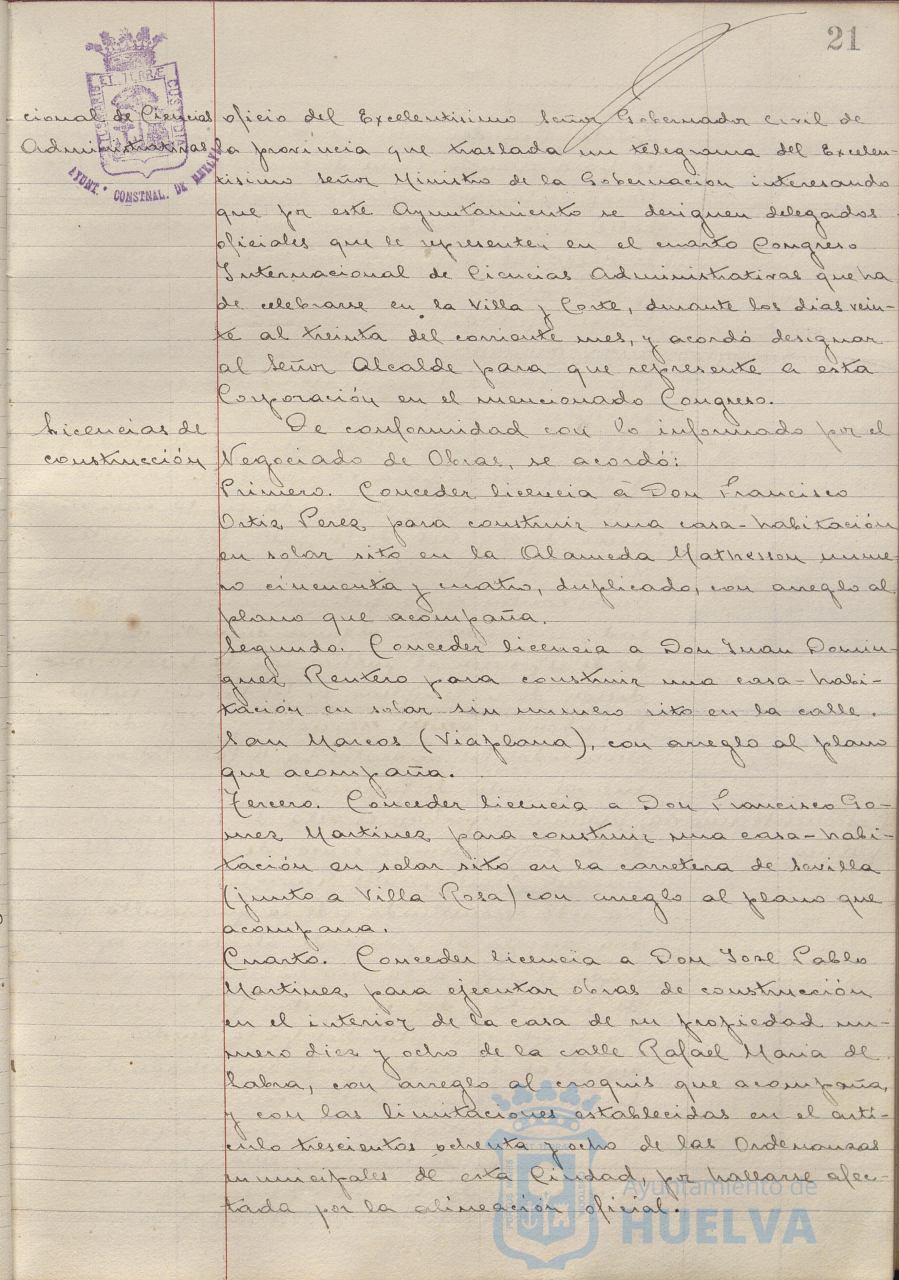 21
PORTUS MARIS ET TERRÆ CUSTODIA
AYUNT. CONSTNAL. DE HUELVA
cional de Ciencias
Administrativas
oficio del Excelentisimo Señor Gobernador civil de
la provincia que traslada un telegrama del Excelen-
tisimo Señor Ministro de la Gobernacion interesando
que por este Ayuntamiento se designen delegados
oficiales que le representen en el cuarto Congreso
Internacional de Ciencias Administrativas que ha
de celebrarse en la Villa y Corte, durante los dias vein-
te al treinta del corriente mes, y acordó designar
al Señor Alcalde para que represente a esta
Corporación en el mencionado Congreso.
Licencias de
construcción
De conformidad con lo informado por el
Negociado de Obras, se acordó:
Primero. Conceder licencia á Don Francisco
Ortiz Perez para construir una casa-habitación
en solar sito en la Alameda Mathesson nume-
ro cincuenta y cuatro, duplicado, con arreglo al
plano que acompaña.
Segundo. Conceder licencia a Don Juan Domin-
guez Rentero para construir una casa-habi-
tación en solar sin numero sito en la calle.
San Marcos (Viaplana), con arreglo al plano
que acompaña.
Tercero. Conceder licencia a Don Francisco Go-
mez Martinez para construir una casa-habi-
tación en solar sito en la carretera de Sevilla
(junto a Villa Rosa) con arreglo al plano que
acompana.
Cuarto. Conceder licencia a Don José Pablo
Martinez para ejecutar obras de construcción
en el interior de la casa de su propiedad nu-
mero diez y ocho de la calle Rafael Maria de
Labra, con arreglo al croquis que acompaña,
y con las limitaciones establecidas en el arti-
culo trescientos ochenta y ocho de las Ordenanzas
municipales de esta Ciudad por hallarse afec-
tada por la alineación oficial.
Ayuntamiento de
HUELVA